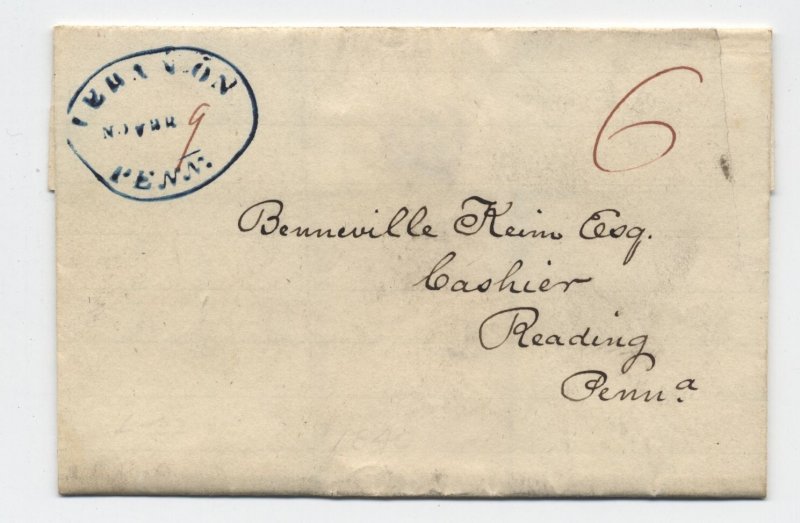 LEBANON
9
PENN.
6
Benneville Keim Esq.
Cashier
Reading
Penna.